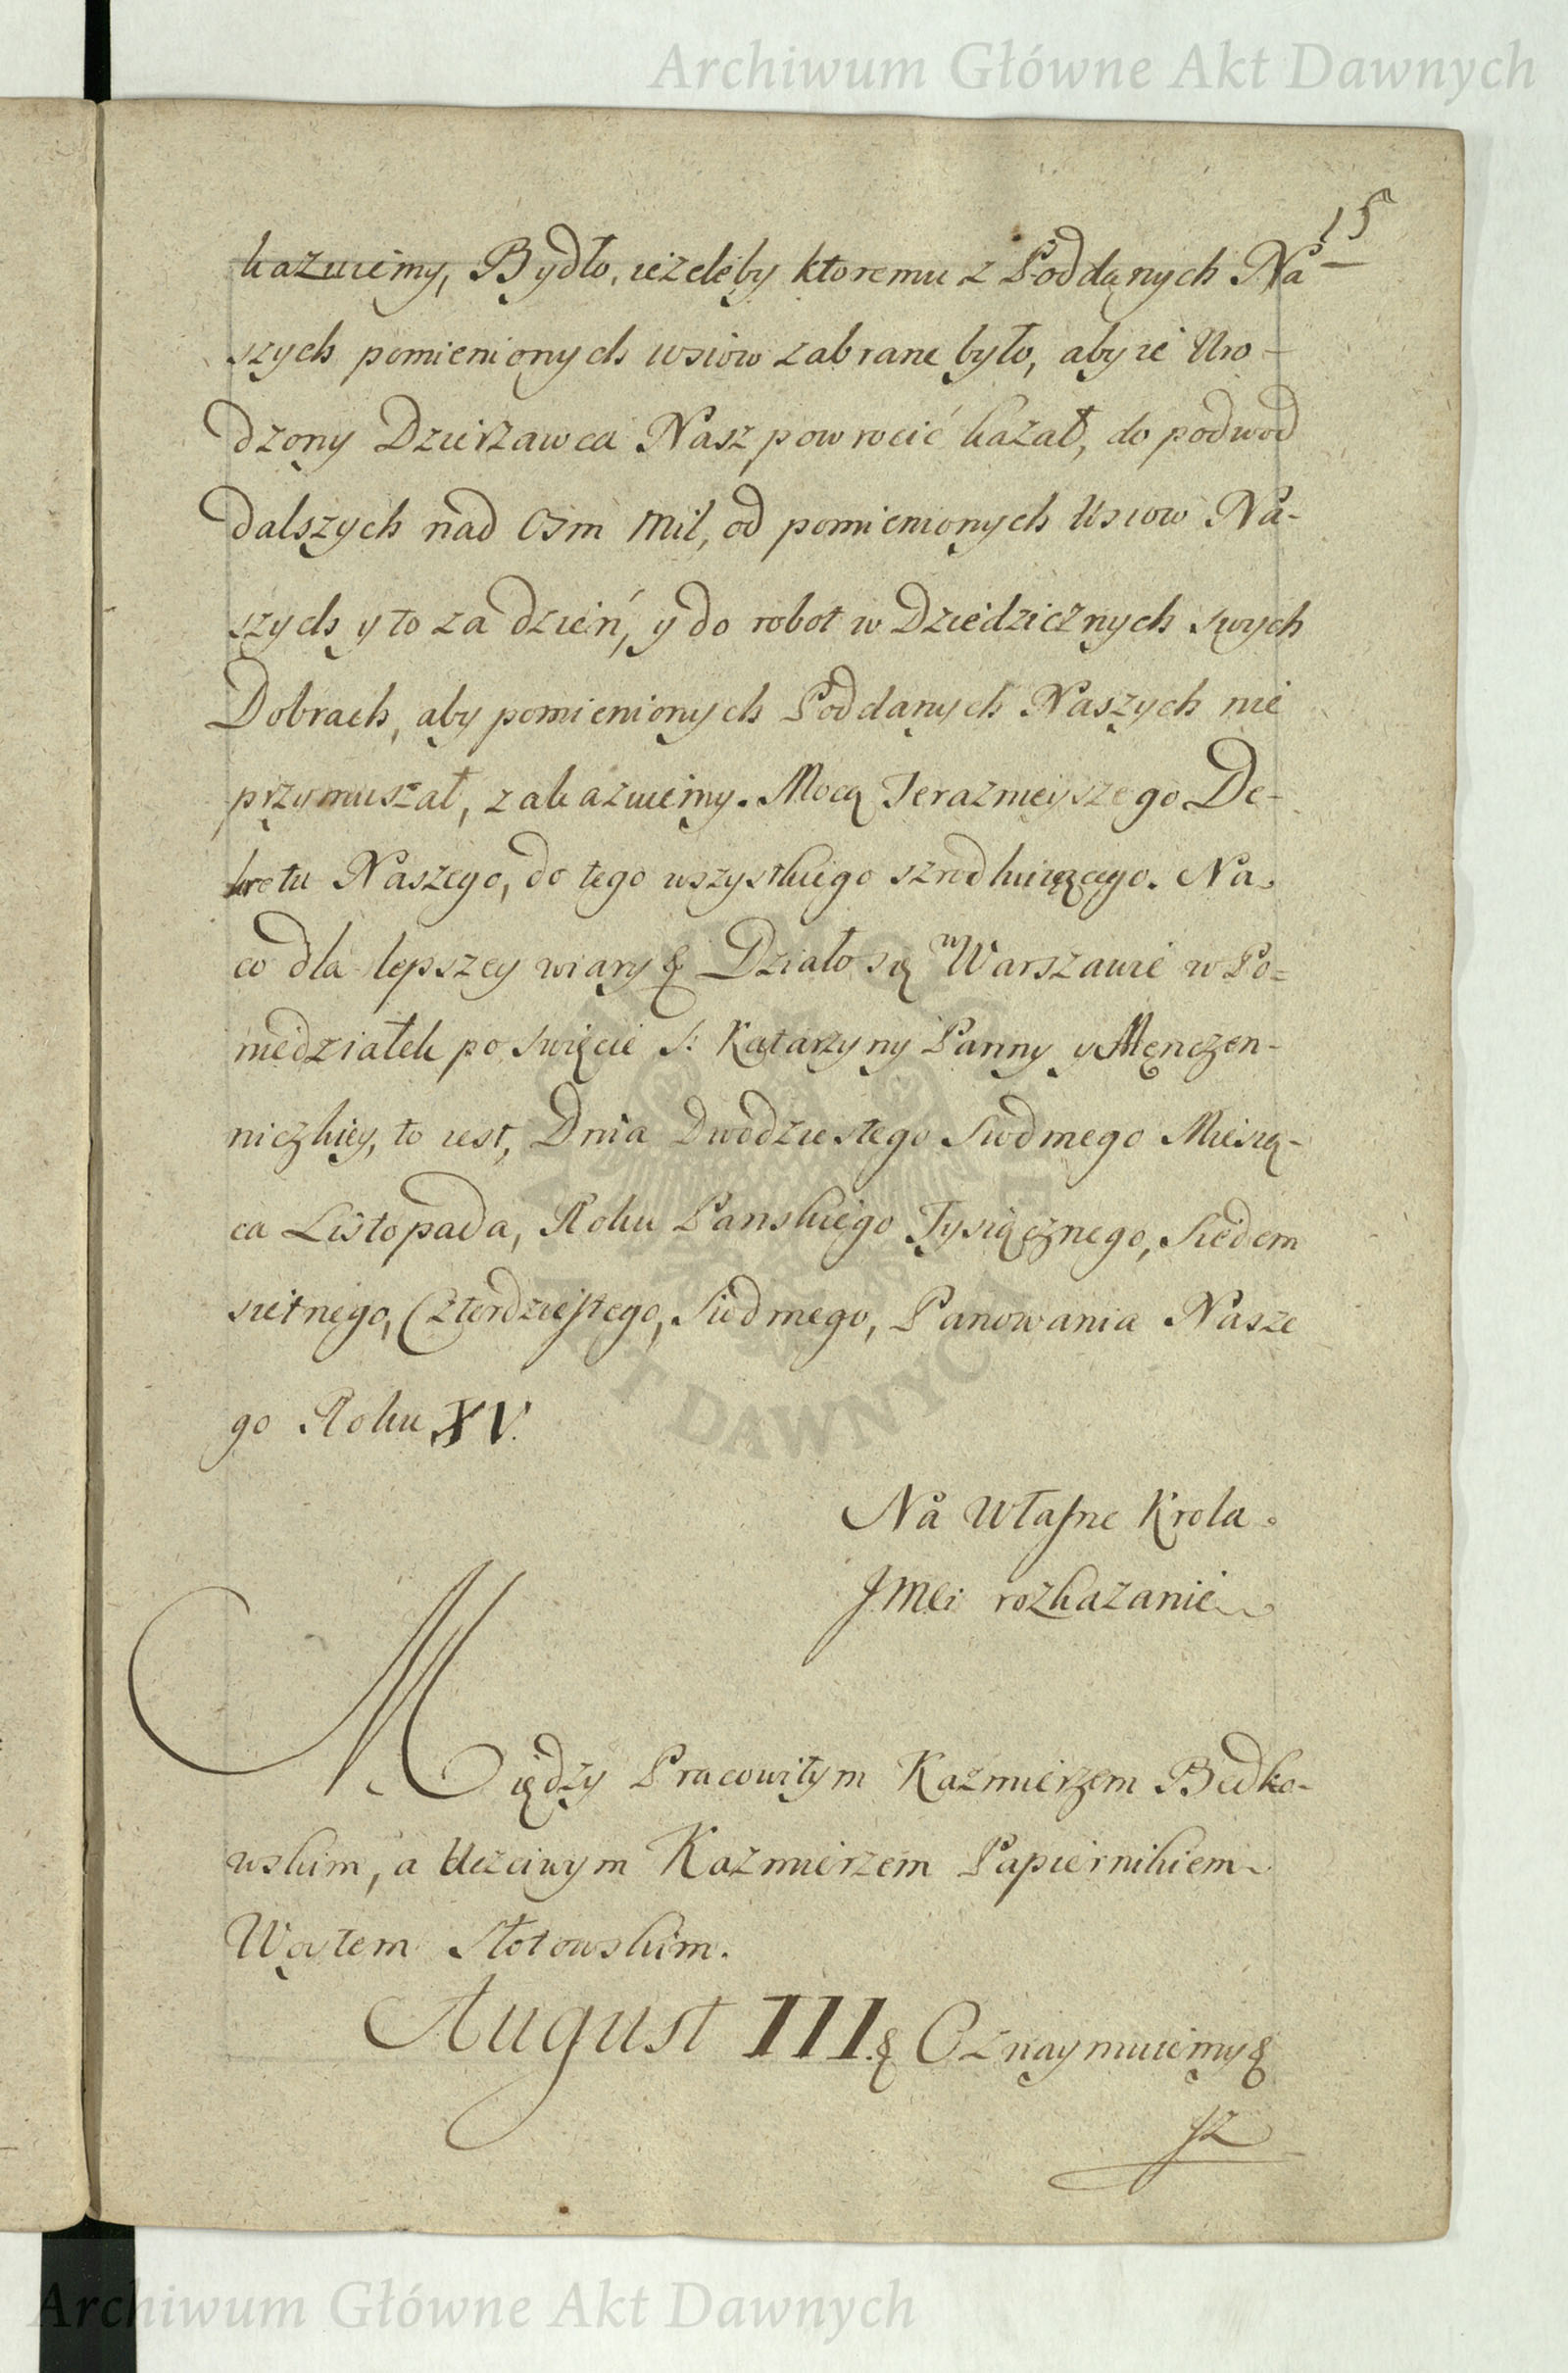 Archiwum Główne Akt Dawnych
15
kazuiemy, Bydło, ieżeleby ktoremu z Poddanych Na
szych pomienionych wsiow zabrane było, aby ie Uro-
dzony Dzierżawca Nasz powrocić kazał, do podwod
dalszych nad Osm Mil, od pomienionych Wsiow Na-
szych y to za dzień, y do robot w Dziedzicznych swych
Dobrach, aby pomienionych Poddanych Naszych nie
przymuszał, zakazuiemy. Mocą Teraznieyszego De-
kretu Naszego, do tego wszystkiego szrodkuiącego. Na
co dla lepszey wiary & Działo się w Warszawie w Po=
niedziałek po Swięcie S: Katarzyny Panny y Męnczen-
niczkiey, to iest, Dnia Dwodziestego Siodmego Miesią-
ca Listopada, Roku Panskiego Tysiącznego, Siedem
setnego, Czterdziestego, Siodmego, Panowania Nasze
go Roku XV.
Na Własne Krola
JMci rozkazanie
Między Pracowitym Kaźmierzem Bedko-
wskim, a Uczciwym Kazmierzem Papiernikiem
Woytem Słotowskim.
August III & Oznaymuiemy &
AKT DAWNYCH
Archiwum Główne Akt Dawnych